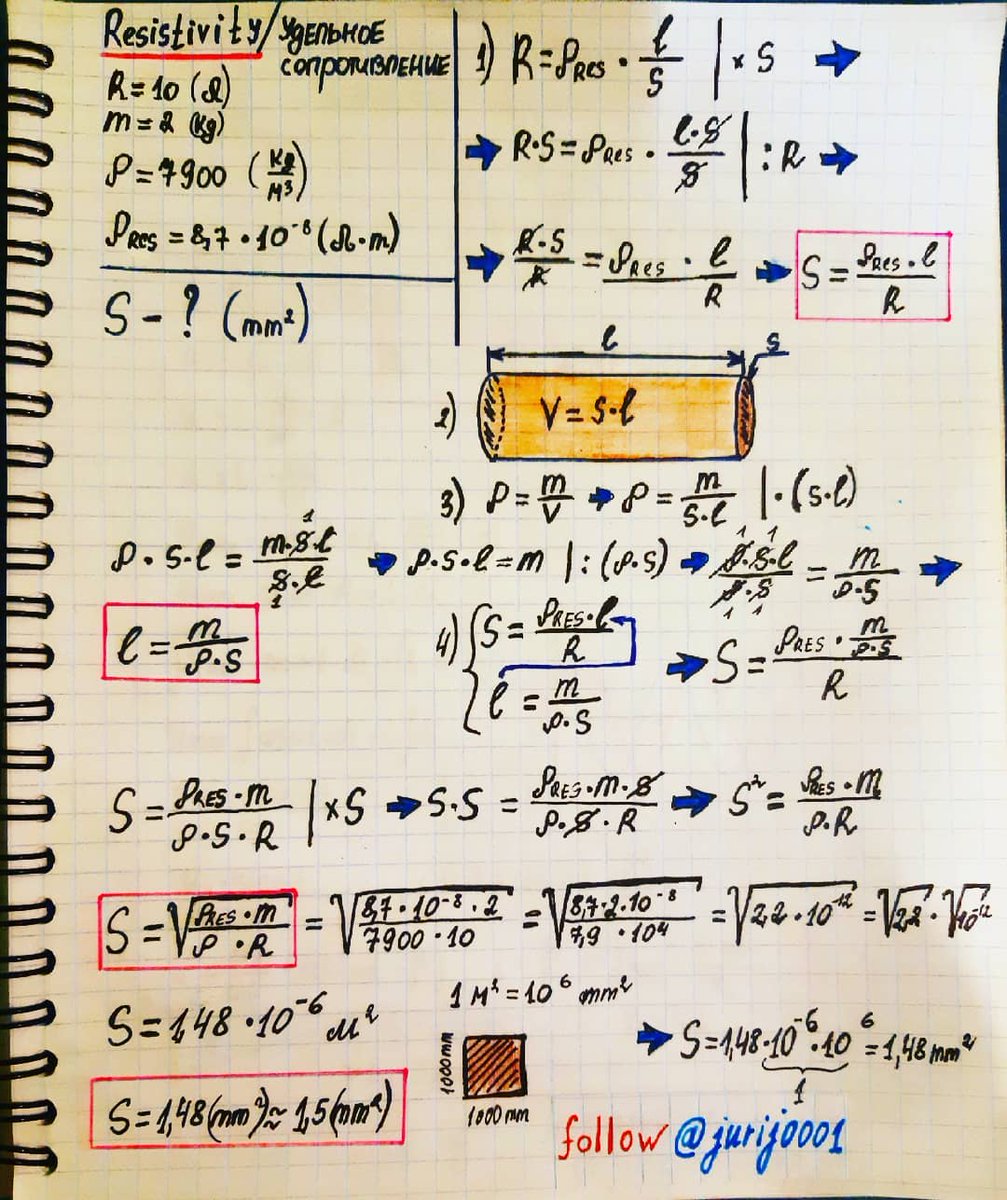 Resistivity/Удельное
сопротивление
R=10 (Ω)
m=2 (kg)
ρ=7900 (kg/м³)
ρRES=8,7·10⁻⁸(Ω·m)
S-? (mm²)
1) R=ρRes·l/S |×S ➡
➡ R·S=ρRes·l·S/S |:R ➡
➡ R·S/R=ρRes·l/R ➡ S=ρRes·l/R
l
S
2) V=S·l
3) ρ=m/V ➡ ρ=m/S·l |·(S·l)
ρ·S·l=m·S·l/S·l ➡ ρ·S·l=m |:(ρ·S) ➡ ρ·S·l/ρ·S=m/ρ·S ➡
1 1 1 1 1 1
l=m/ρ·S
4) { S=ρRES·l/R
l=m/ρ·S
➡ S=ρRES·m/ρ·S/R
S=ρRES·m/ρ·S·R |×S ➡ S·S=ρRES·m·S/ρ·S·R ➡ S²=ρRes·m/ρ·R
S=√ρRES·m/ρ·R=√8,7·10⁻⁸·2/7900·10=√8,7·2·10⁻⁸/7,9·10⁴=√2,2·10⁻¹²=√2,2·√10⁻¹²
S=1,48·10⁻⁶м²
1м²=10⁶mm²
1000mm
1000mm
➡ S=1,48·10⁻⁶·10⁶=1,48mm²
1
S=1,48(mm²)≈1,5(mm²)
follow @jurij0001